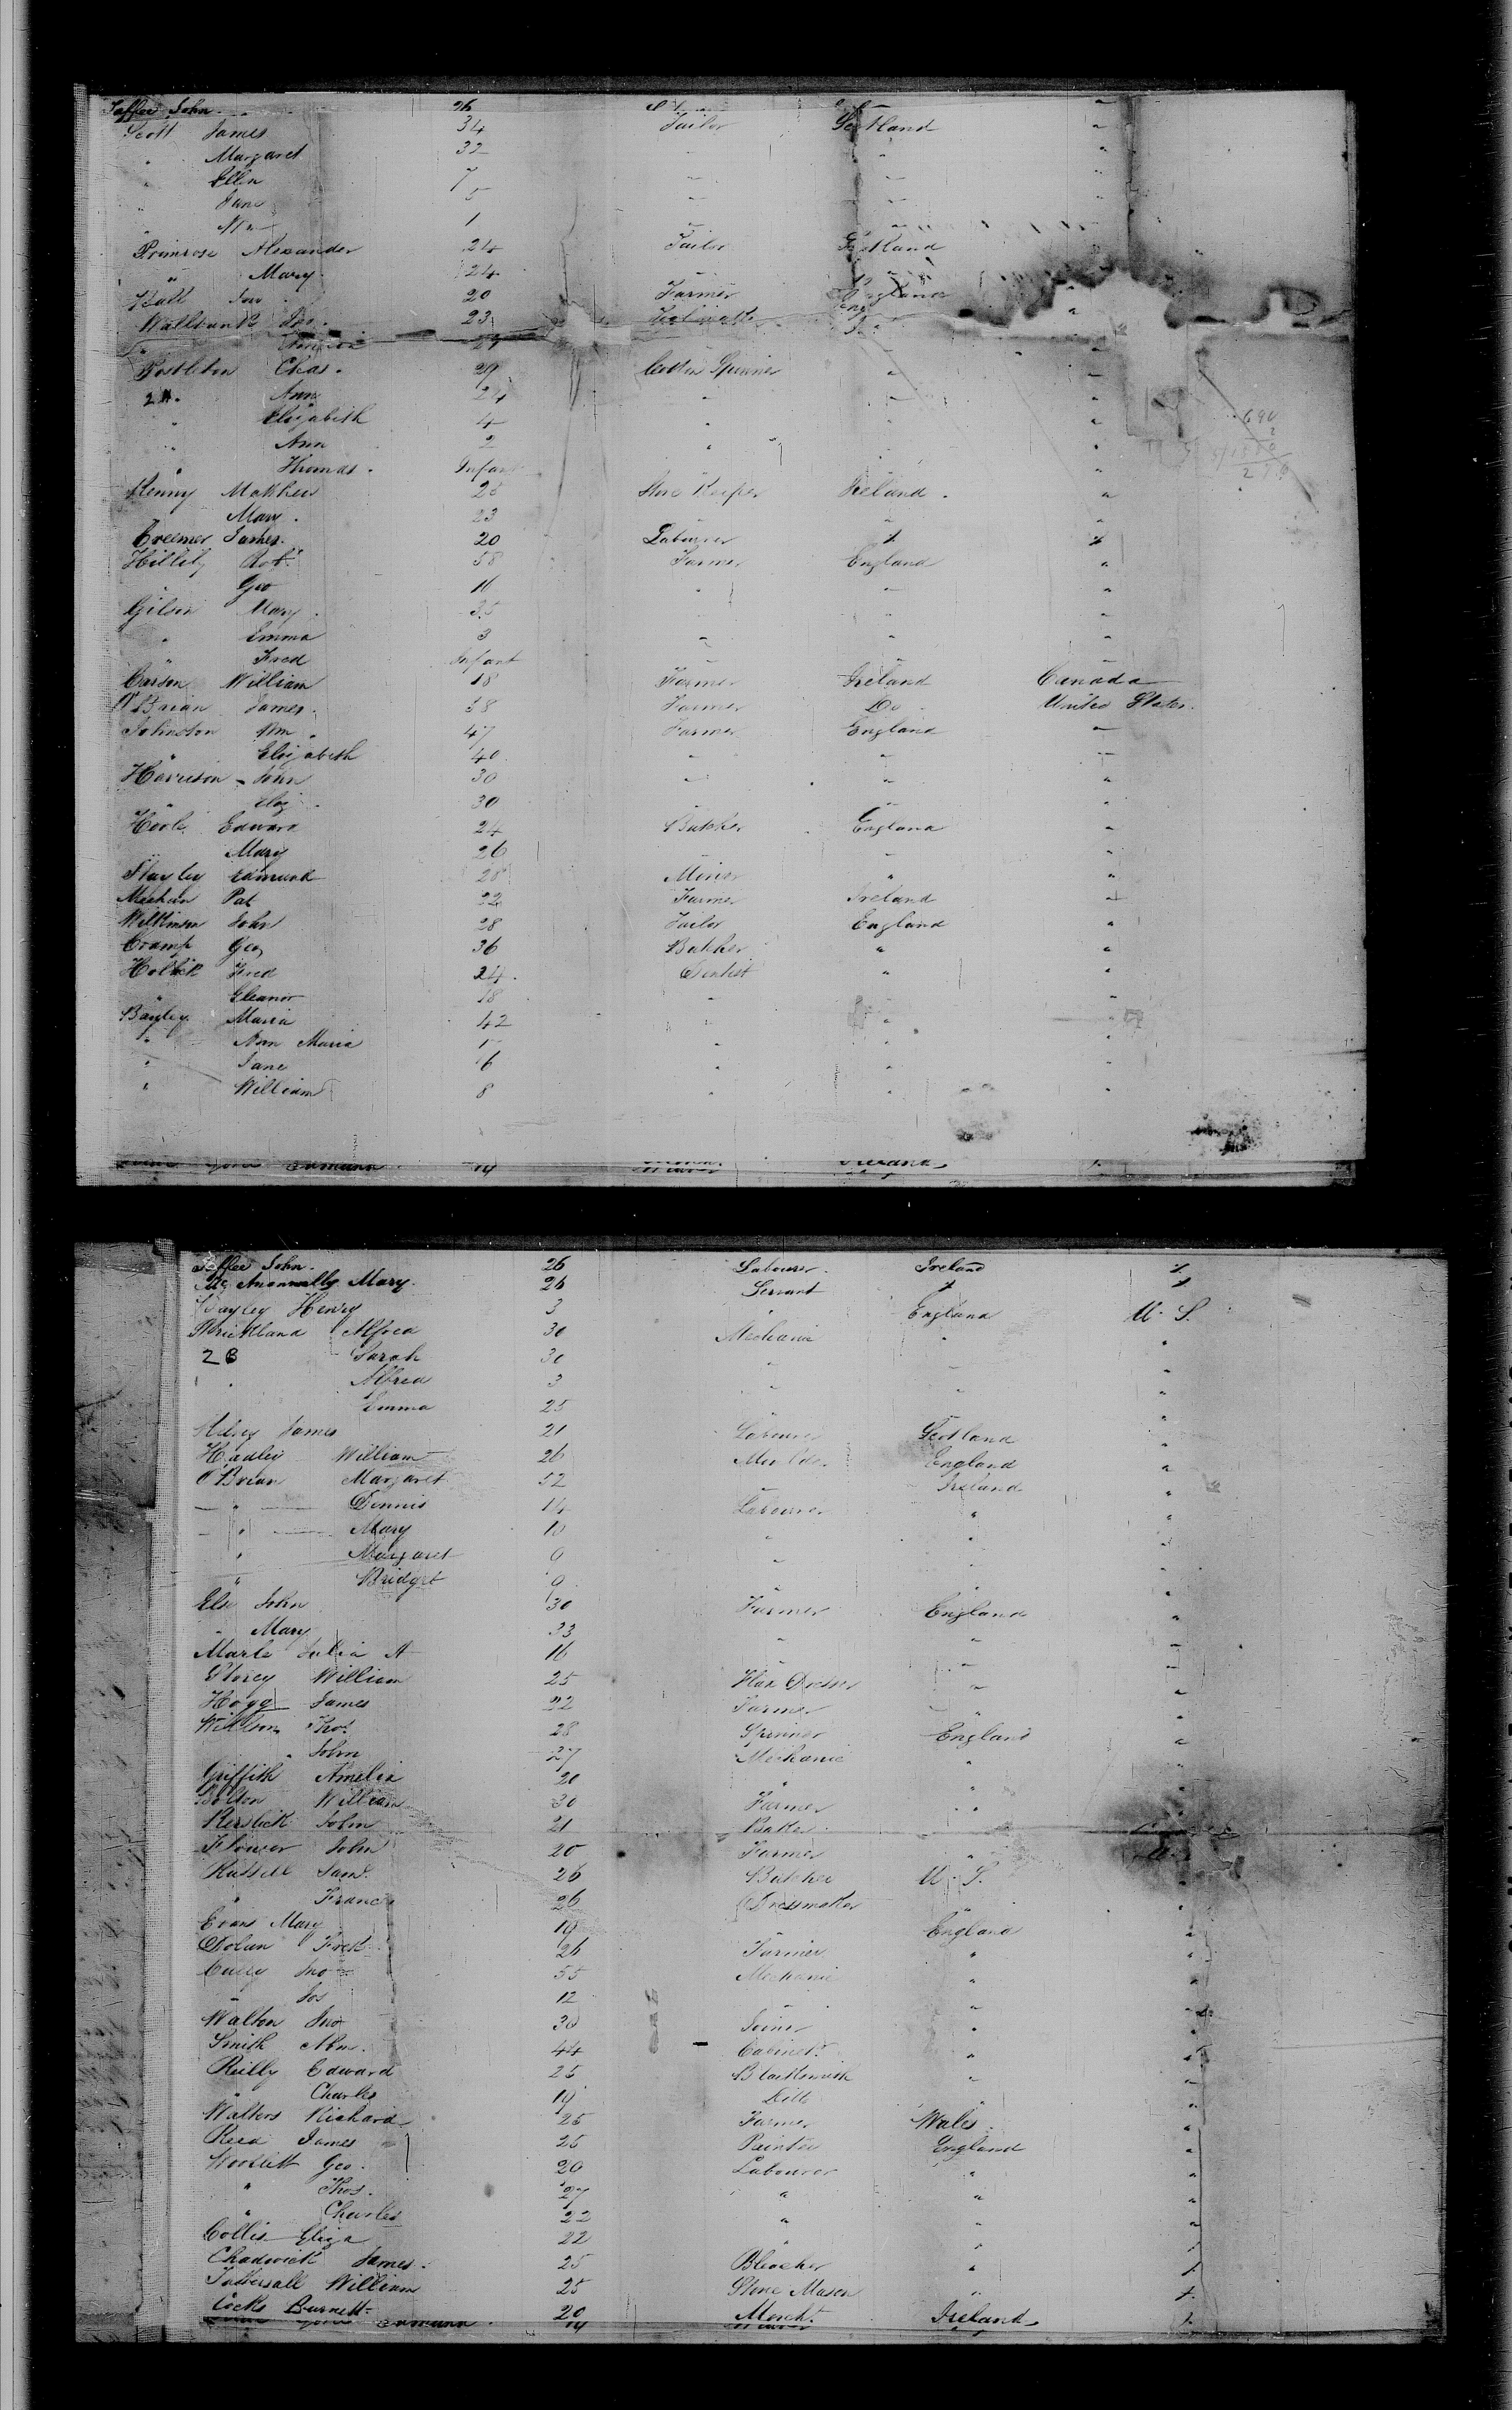 Taffee John. 26
Scott James 34 Tailor Scotland "
" Margaret 32 " " "
" Ellen 7 " " "
" Jane 5 " " "
" Wm 1 " " "
Primrose Alexander 24 Tailor Scotland
" Mary 24 " "
Ball Jno 20 Farmer England "
Wallbank Jno. 23 "
" 24 "
Postleton Chas. 29 Cotton Spinner " "
2 A. Ann 24 " " "
" Elizabeth 4 " " "
" Ann 2 " " "
" Thomas. Infant "
Kenny Matthew 25 Store Keeper Ireland. "
" Mary. 23 " " "
Creemer James. 20 Labourer " "
Hillily Robt. 58 Farmer England "
" Geo 16 " " "
Gilson Mary. 35 " " "
" Emma 3 " " "
" Fred Infant " " "
Carson William 18 Farmer Ireland Canada
O'Brian James. 38 Farmer Do United States.
Johnston Wm. 47 Farmer England "
" Elizabeth 40. " " "
Harrison John 30 " " "
" Eliz. 30 " " "
Hoole Edward 24 Butcher England "
" Mary 26 " " "
Stayley Edmund 28 Miner " "
Meehan Pat 22 Farmer Ireland "
Wilkinson John 28 Tailor England "
Cramp Geo 36 Butcher " "
Holick Fred 24. Dentist " "
" Eleanor 18 " " "
Bayley Maria 42 " " "
" Ann Maria 1 " " "
" Jane 6 " " "
" William 8 " " "
690
2
270
Taffee John. 26 Labourer. Ireland "
Mary. 26 Servant " "
Bayley Henry 3 " England U. S.
Strickland Alfred 30 Mechanic " "
2 B Sarah 30 " " "
" Alfred 3 " " "
" Emma 25 " " "
James 21 Labourer Scotland "
Hadley William 26 Moulder England "
O'Brian Margaret 52 " Ireland "
" Dennis 14 Labourer " "
" Mary 10 " " "
" Margaret 0 " " "
" Bridget 0 " " "
Else John 30 Farmer England "
" Mary 33 " " "
Marle Julia A 16 " " "
Storey William 25 Flax Dresser " "
Hogg James 22 Farmer " "
Willson Thos. 28 Spinner England "
" John 27 Mechanic " "
Griffith Amelia 20 " " "
Bolton William 30 Farmer " "
Kerslick John 21 Baker " "
Flower John 20 Farmer " "
Russell Saml. 26 Butcher U. S. "
" Frances 26 Dressmaker " "
Evans Mary 19 England "
Dolan Fredk 26 Farmer " "
Cully Jno 55 Mechanic " "
" Jos 12 " " "
Walton Jno 30 Joiner " "
Smith Abm. 44 Cabinet " "
Reilly Edward 25 Blacksmith " "
" Charles 19 Ditto " "
Walters Richard 25 Farmer Wales. "
Reed James 25 Painter England "
Woollett Geo. 20 Labourer " "
" Thos. 27 " " "
" Charles 22 " " "
Collis Eliza 22 " " "
Chadwick James. 25 Bleacher " "
Tattersall William 25 Stone Mason " "
Cocks Burnett 20 Mercht. Ireland "